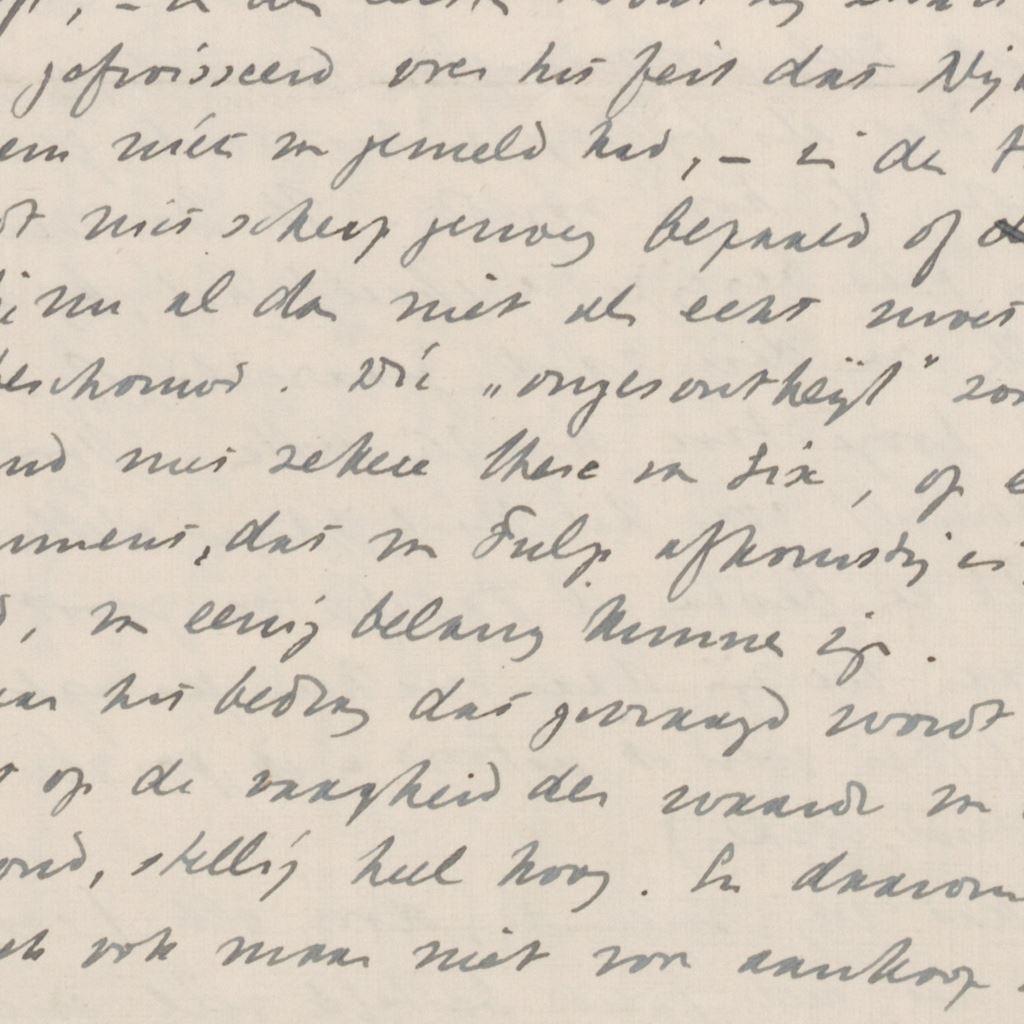 gefroisseerd over het feit dat Nij
niets van gemeld had, – in de
niet scherp genoeg bepaald of
nu al dan niet als echt moest
beschouwd. Dié „ongesontheijt"
met zekere these van Six, op
dat van Tulp afkomstig is,
, van eenig belang kunnen zijn.
het bedrag dat gevraagd wordt
op de vaagheid der waarde van
, stellig heel hoog. En daarom
ook maar niet voor aankoop